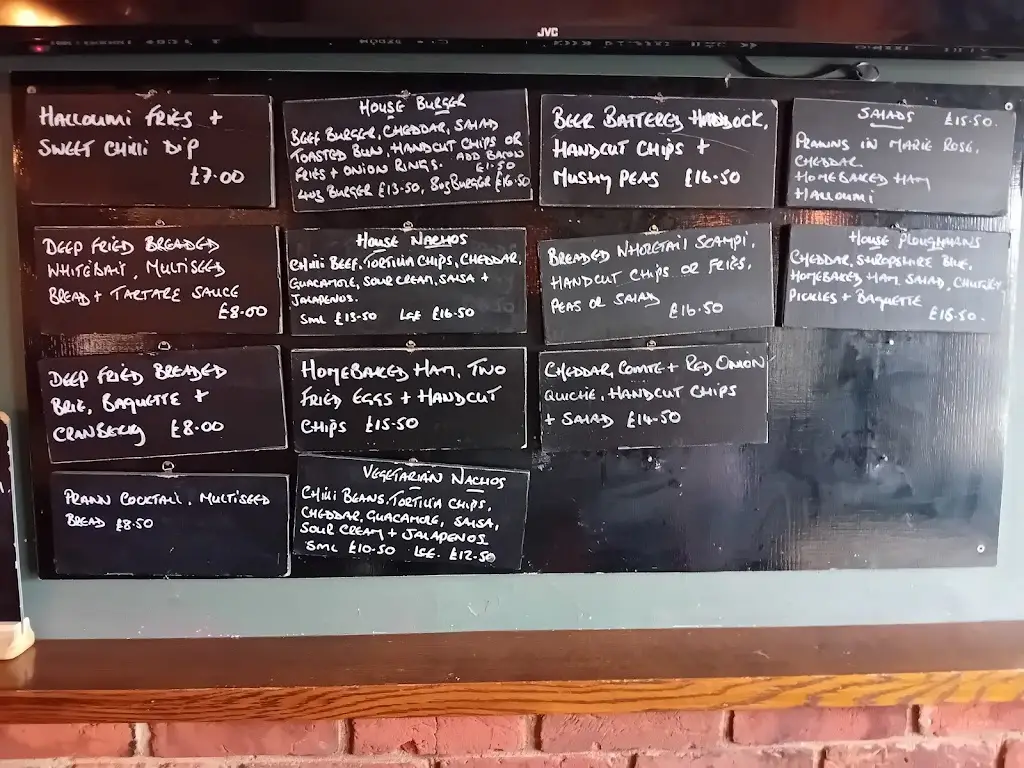 JVC
HALLOUMI FRIES +
SWEET CHILLI DIP
£7.00
DEEP FRIED BREADED
WHITEBAIT, MULTISEED
BREAD + TARTARE SAUCE
£8.00
DEEP FRIED BREADED
BRIE, BAQUETTE +
CRANBERRY £8.00
PRAWN COCKTAIL, MULTISEED
BREAD £8.50
HOUSE BURGER
BEEF BURGER, CHEDDAR, SALAD
TOASTED BUN, HANDCUT CHIPS OR
FRIES + ONION RINGS. ADD BACON
£1.50
4oz BURGER £13.50, 8oz BURGER £16.50
HOUSE NACHOS
CHILLI BEEF, TORTILLA CHIPS, CHEDDAR,
GUACAMOLE, SOUR CREAM, SALSA +
JALAPENOS.
SML £13.50 LGE £16.50
HOMEBAKED HAM, TWO
FRIED EGGS + HANDCUT
CHIPS £15.50
VEGETARIAN NACHOS
CHILLI BEANS, TORTILLA CHIPS,
CHEDDAR, GUACAMOLE, SALSA,
SOUR CREAM + JALAPENOS
SML £10.50 LGE. £12.50
BEER BATTERED HADDOCK,
HANDCUT CHIPS +
MUSHY PEAS £16.50
BREADED WHOLETAIL SCAMPI,
HANDCUT CHIPS OR FRIES,
PEAS OR SALAD
£16.50
CHEDDAR, COMTE + RED ONION
QUICHE, HANDCUT CHIPS
+ SALAD £14.50
SALADS £15.50.
PRAWNS IN MARIE ROSE,
CHEDDAR
HOMEBAKED HAM
HALLOUMI
HOUSE PLOUGHMANS
CHEDDAR, SHROPSHIRE BLUE,
HOMEBAKED HAM, SALAD, CHUTNEY,
PICKLES + BAQUETTE
£16.50.